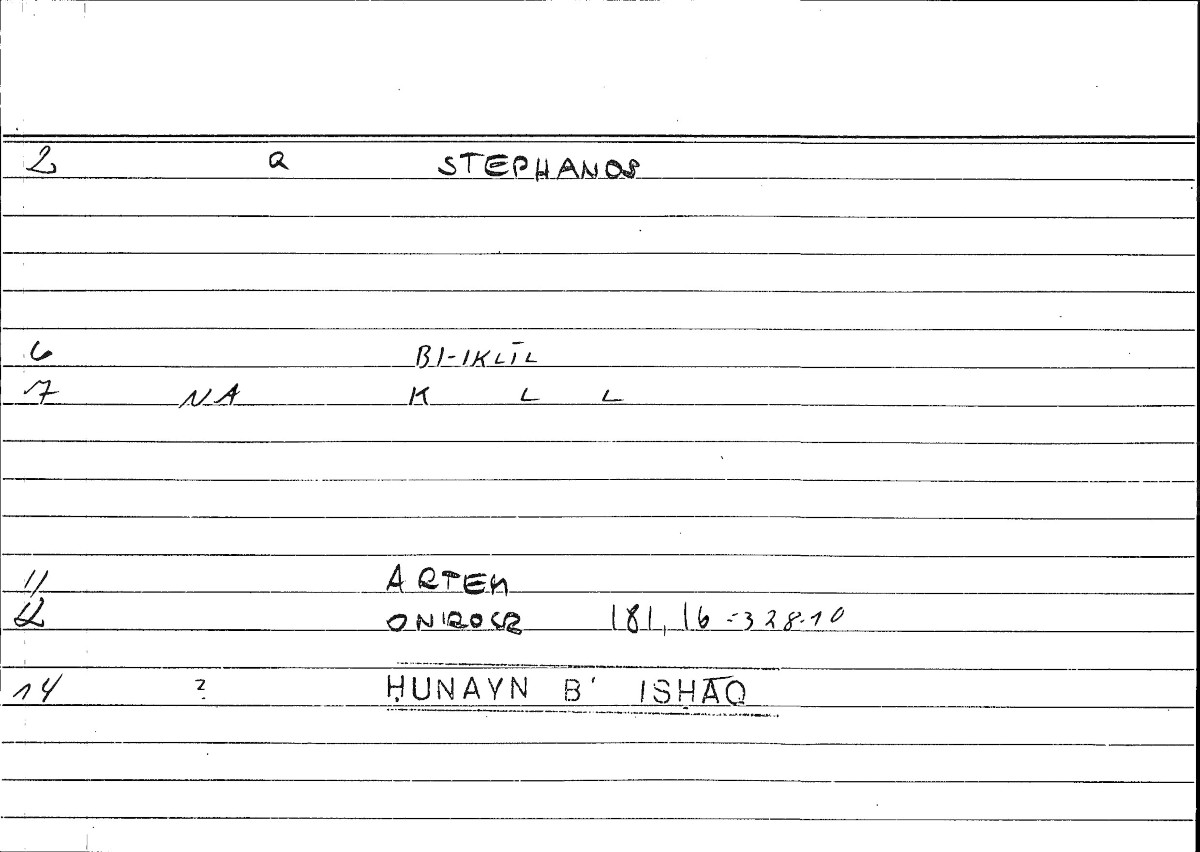 2 Q STEPHANOS
6 BI-IKLĪL
7 NA K L L
11 ARTEM
12 ONIROCR 181,16-328.10
14 ? ḤUNAYN B' ISḤĀQ